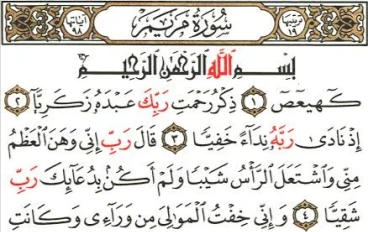 ترتيبها ١٩ سُورَةُ مَرْيَمَ آياتها ٩٨
بِسْمِ اللَّهِ الرَّحْمَٰنِ الرَّحِيمِ
كٓهيعٓصٓ ١ ذِكْرُ رَحْمَتِ رَبِّكَ عَبْدَهُۥ زَكَرِيَّآ ٢
إِذْ نَادَىٰ رَبَّهُۥ نِدَآءً خَفِيًّا ٣ قَالَ رَبِّ إِنِّى وَهَنَ ٱلْعَظْمُ
مِنِّى وَٱشْتَعَلَ ٱلرَّأْسُ شَيْبًا وَلَمْ أَكُنۢ بِدُعَآئِكَ رَبِّ
شَقِيًّا ٤ وَإِنِّى خِفْتُ ٱلْمَوَٰلِىَ مِن وَرَآءِى وَكَانَتِ